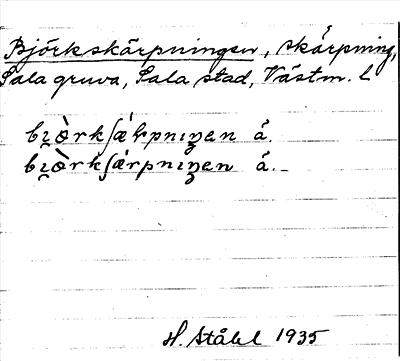 Björkskärpningen, skärpning,
Sala gruva, Sala stad, Västm. L
bi̯ὸrkʃǽrpnıŋen å.
bi̯ὸrkʃǽrpnıŋen å.
H. Ståhl 1935